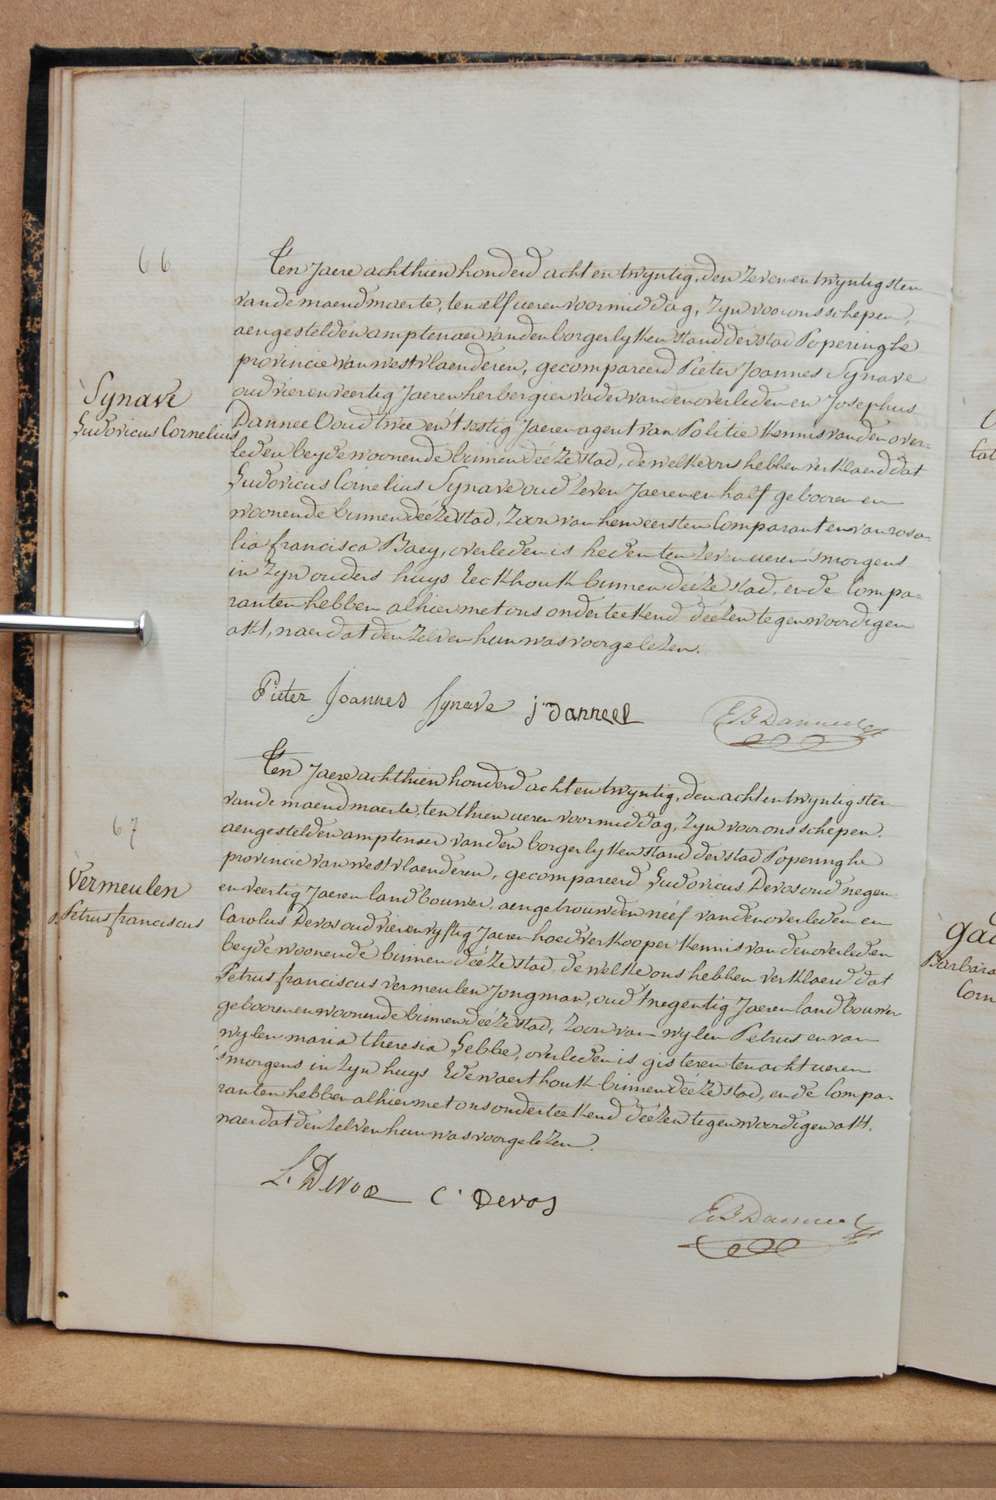 66
Synave
Ludovicus Cornelius
Ten Jaere achthien honderd acht en twyntig, den zeven en twyntigsten
van de maend maerte, ten elf ueren voormiddag, zyn voor ons schepen,
aengestelden amptenaer van den borgerlyken stand der stad Poperinghe
provincie van westvlaenderen, gecompareerd Pieter Joannes Synave
oud vier en veertig Jaeren herbergier vader van den overleden en Josephus
Danneel oud twee en t'sestig Jaeren agent van Politie kennis van den over-
leden beyde woonende binnen deéze stad, de welke ons hebben verklaerd dat
Ludovicus Cornelius Synave oud zeven Jaeren en half gebooren en
woonende binnen deéze stad, zoon van hem eersten Comparant en van rosa-
lia francisca Baey, overleden is heden ten zeven ueren s'morgens
in zyn ouders huys Eeckhouk binnen deéze stad, en de Compa-
ranten hebben alhier met ons onderteekend deézen tegenwoordigen
akt, naer dat den zelven hun was voorgelezen.
Pieter Joannes Synave j Danneel
67
Vermeulen
Petrus franciscus
Ten Jaere achthien honderd acht en twyntig, den acht en twyntigsten
van de maend maerte, ten thien ueren voormiddag, zyn voor ons schepen,
aengestelden amptenaer van den borgerlyken stand der stad Poperinghe
provincie van westvlaenderen, gecompareerd Ludovicus Devos oud negen
en veertig Jaeren landbouwer, aengetrouwden néef van den overleden en
Carolus Devos oud vier en vyftig Jaeren hoedverkooper kennis van den overleden
beyde woonende binnen deéze stad, de welke ons hebben verklaerd dat
Petrus franciscus vermeulen Jongman, oud t'negentig Jaeren landbouwer
gebooren en woonende binnen deéze stad, zoon van wylen Petrus en van
wylen maria theresia Hebbe, overleden is gisteren ten acht ueren
s'morgens in zyn huys Edewaerthouk binnen deéze stad, en de Compa-
ranten hebben alhier met ons onderteekend deézen tegenwoordigen akt,
naer dat den zelven hun was voorgelezen.
L. Devos C. Devos
Barbara